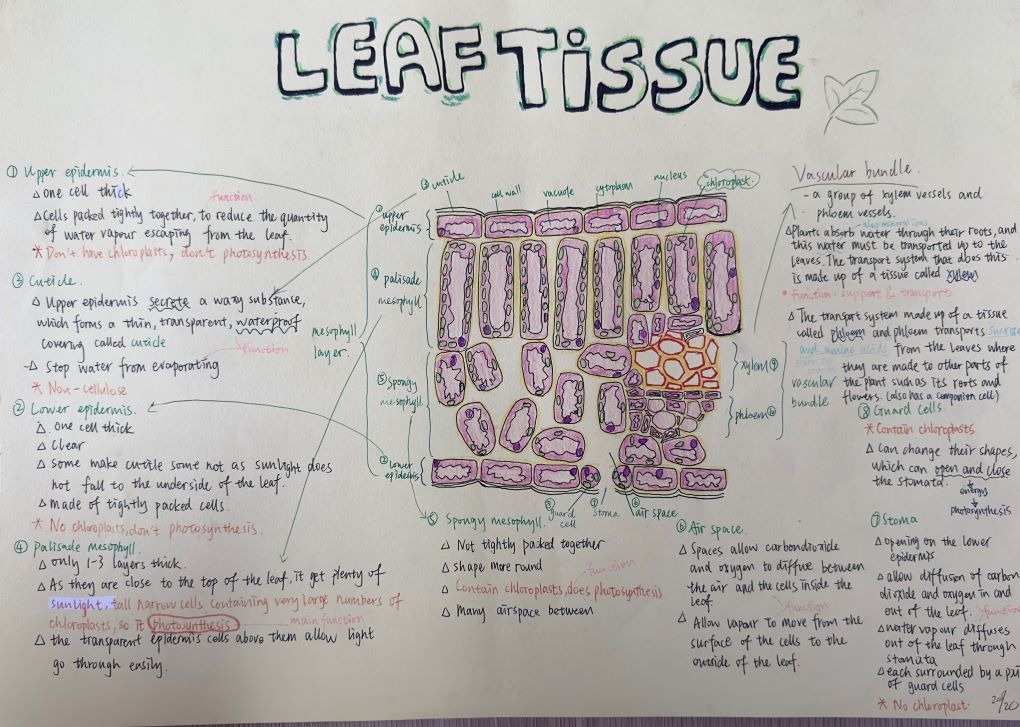 LEAF TISSUE
① Upper epidermis.
△ one cell thick
function.
△ Cells packed tightly together, to reduce the quantity
of water vapour escaping from the leaf.
* Don't have chloroplasts, don't photosynthesis
③ Cuticle.
△ Upper epidermis secrete a waxy substance,
which forms a thin, transparent, waterproof
covering called cuticle
function
△ Stop water from evaporating
* Non-cellulose
② Lower epidermis.
△ one cell thick
△ Clear
△ some make cuticle some not as sunlight does
not fall to the underside of the leaf.
△ made of tightly packed cells.
* No chloroplasts, don't photosynthesis.
④ Palisade mesophyll.
△ only 1-3 layers thick.
△ As they are close to the top of the leaf, it get plenty of
sunlight, tall narrow cells containing very large numbers of
chloroplasts, so it photosynthesis
main function
△ the transparent epidermis cells above them allow light
go through easily.
③ cuticle
cell wall
vacuole
cytoplasm
nucleus
chloroplast
① upper
epidermis
④ palisade
mesophyll
mesophyll
layer
⑤ Spongy
mesophyll
② Lower
epidermis
xylem ⑨
phloem ⑩
vascular
bundle
⑧ guard
cell
⑦ stoma
⑥ air space
⑤ Spongy mesophyll.
△ Not tightly packed together
△ shape more round
function
△ Contain chloroplasts, does photosynthesis
△ Many airspace between
⑥ Air space.
△ Spaces allow carbondioxide
and oxygen to diffuse between
the air and the cells inside the
leaf
function
△ Allow vapour to move from the
surface of the cells to the
outside of the leaf.
Vascular bundle.
- a group of xylem vessels and
phloem vessels.
also mineral ions
△ Plants absorb water through their roots, and
this water must be transported up to the
leaves. The transport system that does this
is made up of a tissue called xylem
* function: support & transport
△ The transport system made up of a tissue
called phloem and phloem transports sucrose
and amino acids from the leaves where
they are made to other parts of
the plant such as its roots and
flowers. (also has a companion cell)
⑧ Guard cells.
* Contain chloroplasts
△ Can change their shapes,
which can open and close
the stomata.
energy
photosynthesis
⑦ Stoma
△ opening on the lower
epidermis
△ allow diffusion of carbon
dioxide and oxygen in and
out of the leaf.
function
△ water vapour diffuses
out of the leaf through
stomata
△ each surrounded by a pair
of guard cells
* No chloroplast.
20/20